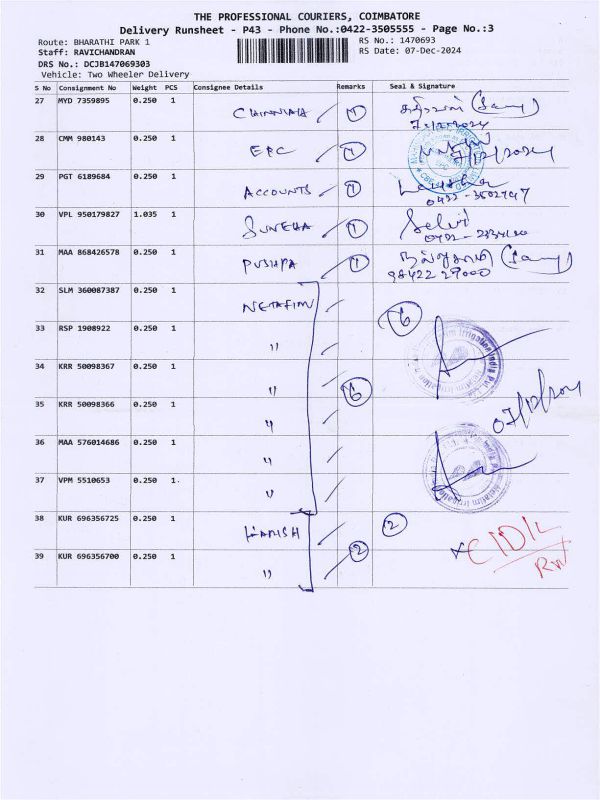 THE PROFESSIONAL COURIERS, COIMBATORE
Delivery Runsheet - P43 - Phone No.:0422-3505555 - Page No.:3
Route: BHARATHI PARK 1 RS No.: 1470693
Staff: RAVICHANDRAN RS Date: 07-Dec-2024
DRS No.: DCJB147069303
Vehicle: Two Wheeler Delivery
S No Consignment No Weight PCS Consignee Details Remarks Seal & Signature
27 MYD 7359895 0.250 1 1
28 CMM 980143 0.250 1 1
29 PGT 6189684 0.250 1 ACCOUNTS 1
0422-3502747
30 VPL 950179827 1.035 1 SUNEHA 1 Selvi
31 MAA 868426578 0.250 1 PUSHPA 1
98422 27000
32 SLM 360087387 0.250 1 NETAFIM 6
33 RSP 1908922 0.250 1 "
34 KRR 50098367 0.250 1 " 6
35 KRR 50098366 0.250 1 "
07/12/2024
36 MAA 576014686 0.250 1 "
37 VPM 5510653 0.250 1. "
38 KUR 696356725 0.250 1 HARISH 2
39 KUR 696356700 0.250 1 " 2